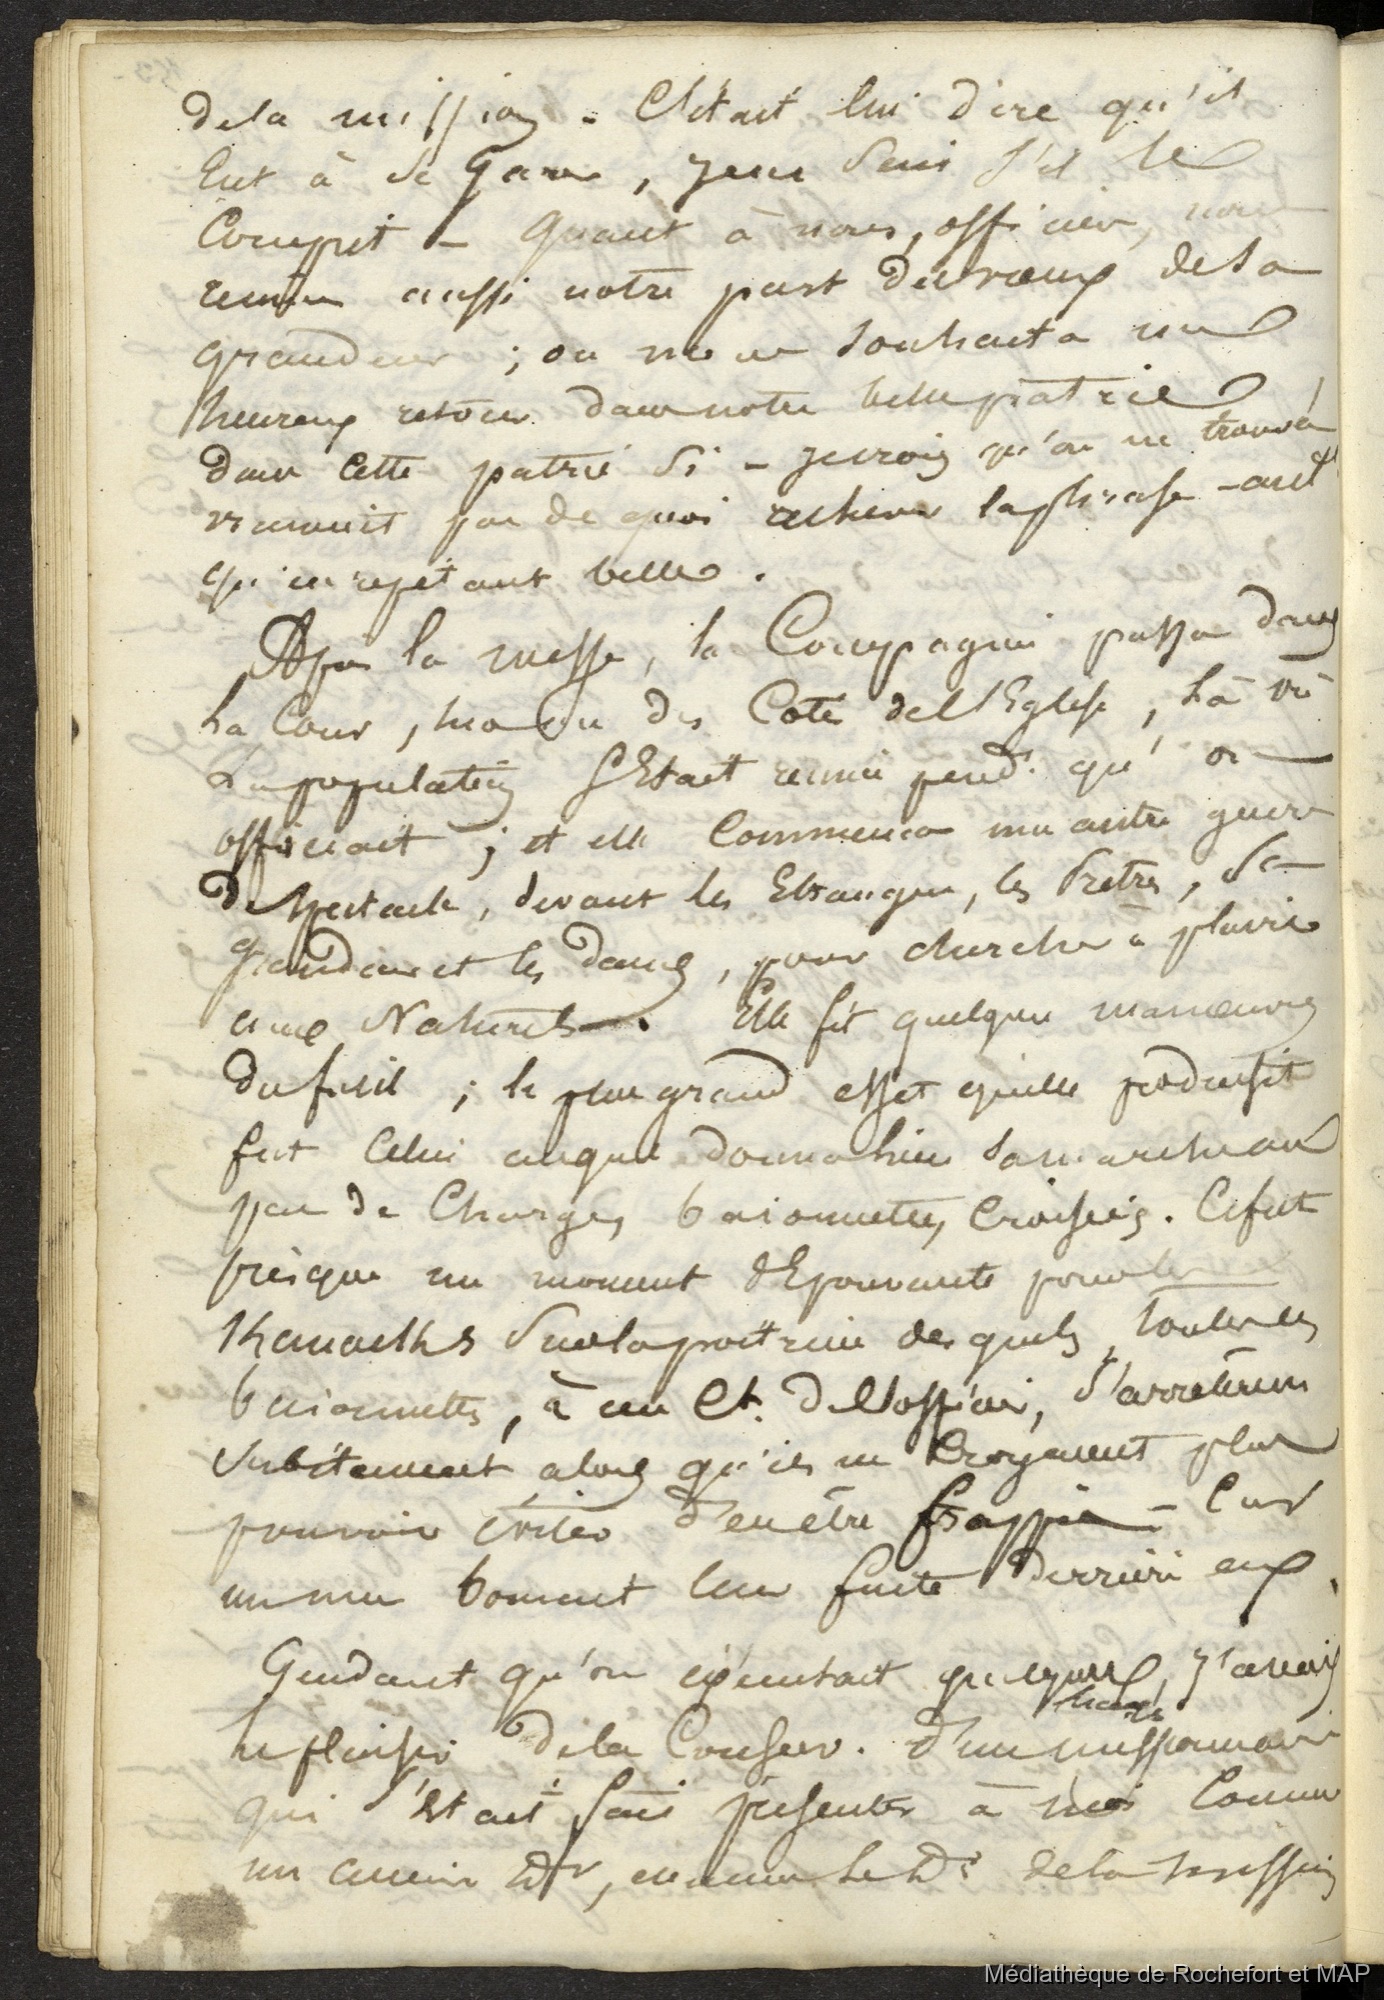 de la mission - C'était lui dire qu'il
Eut à se Garer, je ne sais s'il le
Comprit - Quant à nous, officiers, nous
eumes aussi notre part des vœux de sa
grandeur ; on nous souhaita un
heureux retour dans notre belle patrie
dans cette patrie si - je crois qu'on ne trouva
vraiment pas de quoi achever la phrase - aut
qu'en repétant belle .
Après la messe, la Compagnie passa dans
la Cour, de l'Eglise, là où
la population s'Etait reunie pend.t qu' on
officiait ; et elle Commença un autre genre
de spectacle, devant les Etrangers, les Prêtres, Sa
grandeur et les dames, pour chercher à plaire
aux Naturels. Elle fit quelques manœuvres
du fusil ; le plus grand effet qu'elle produisit
fut Celui auquel donna lieu sa marche au
pas de Charge, baionnettes Croisées. Ce fut
presque un moment d'Epouvante pour les
Kanacks sur la poitrine desquels, toutes les
baionnettes, à un Ct. de l'officier, s'arrêterent
subitement alors qu'ils ne Croyaient plus
pouvoir éviter d'en être frappés - Car
un mur bornait leur fuite derrière eux.
Pendant qu'on exécutait j'avais
le plaisir de la Conser. d'un missionnaire
qui s'était fait présenter à moi Comme
un ancien Dr, comme le Dr de la mission